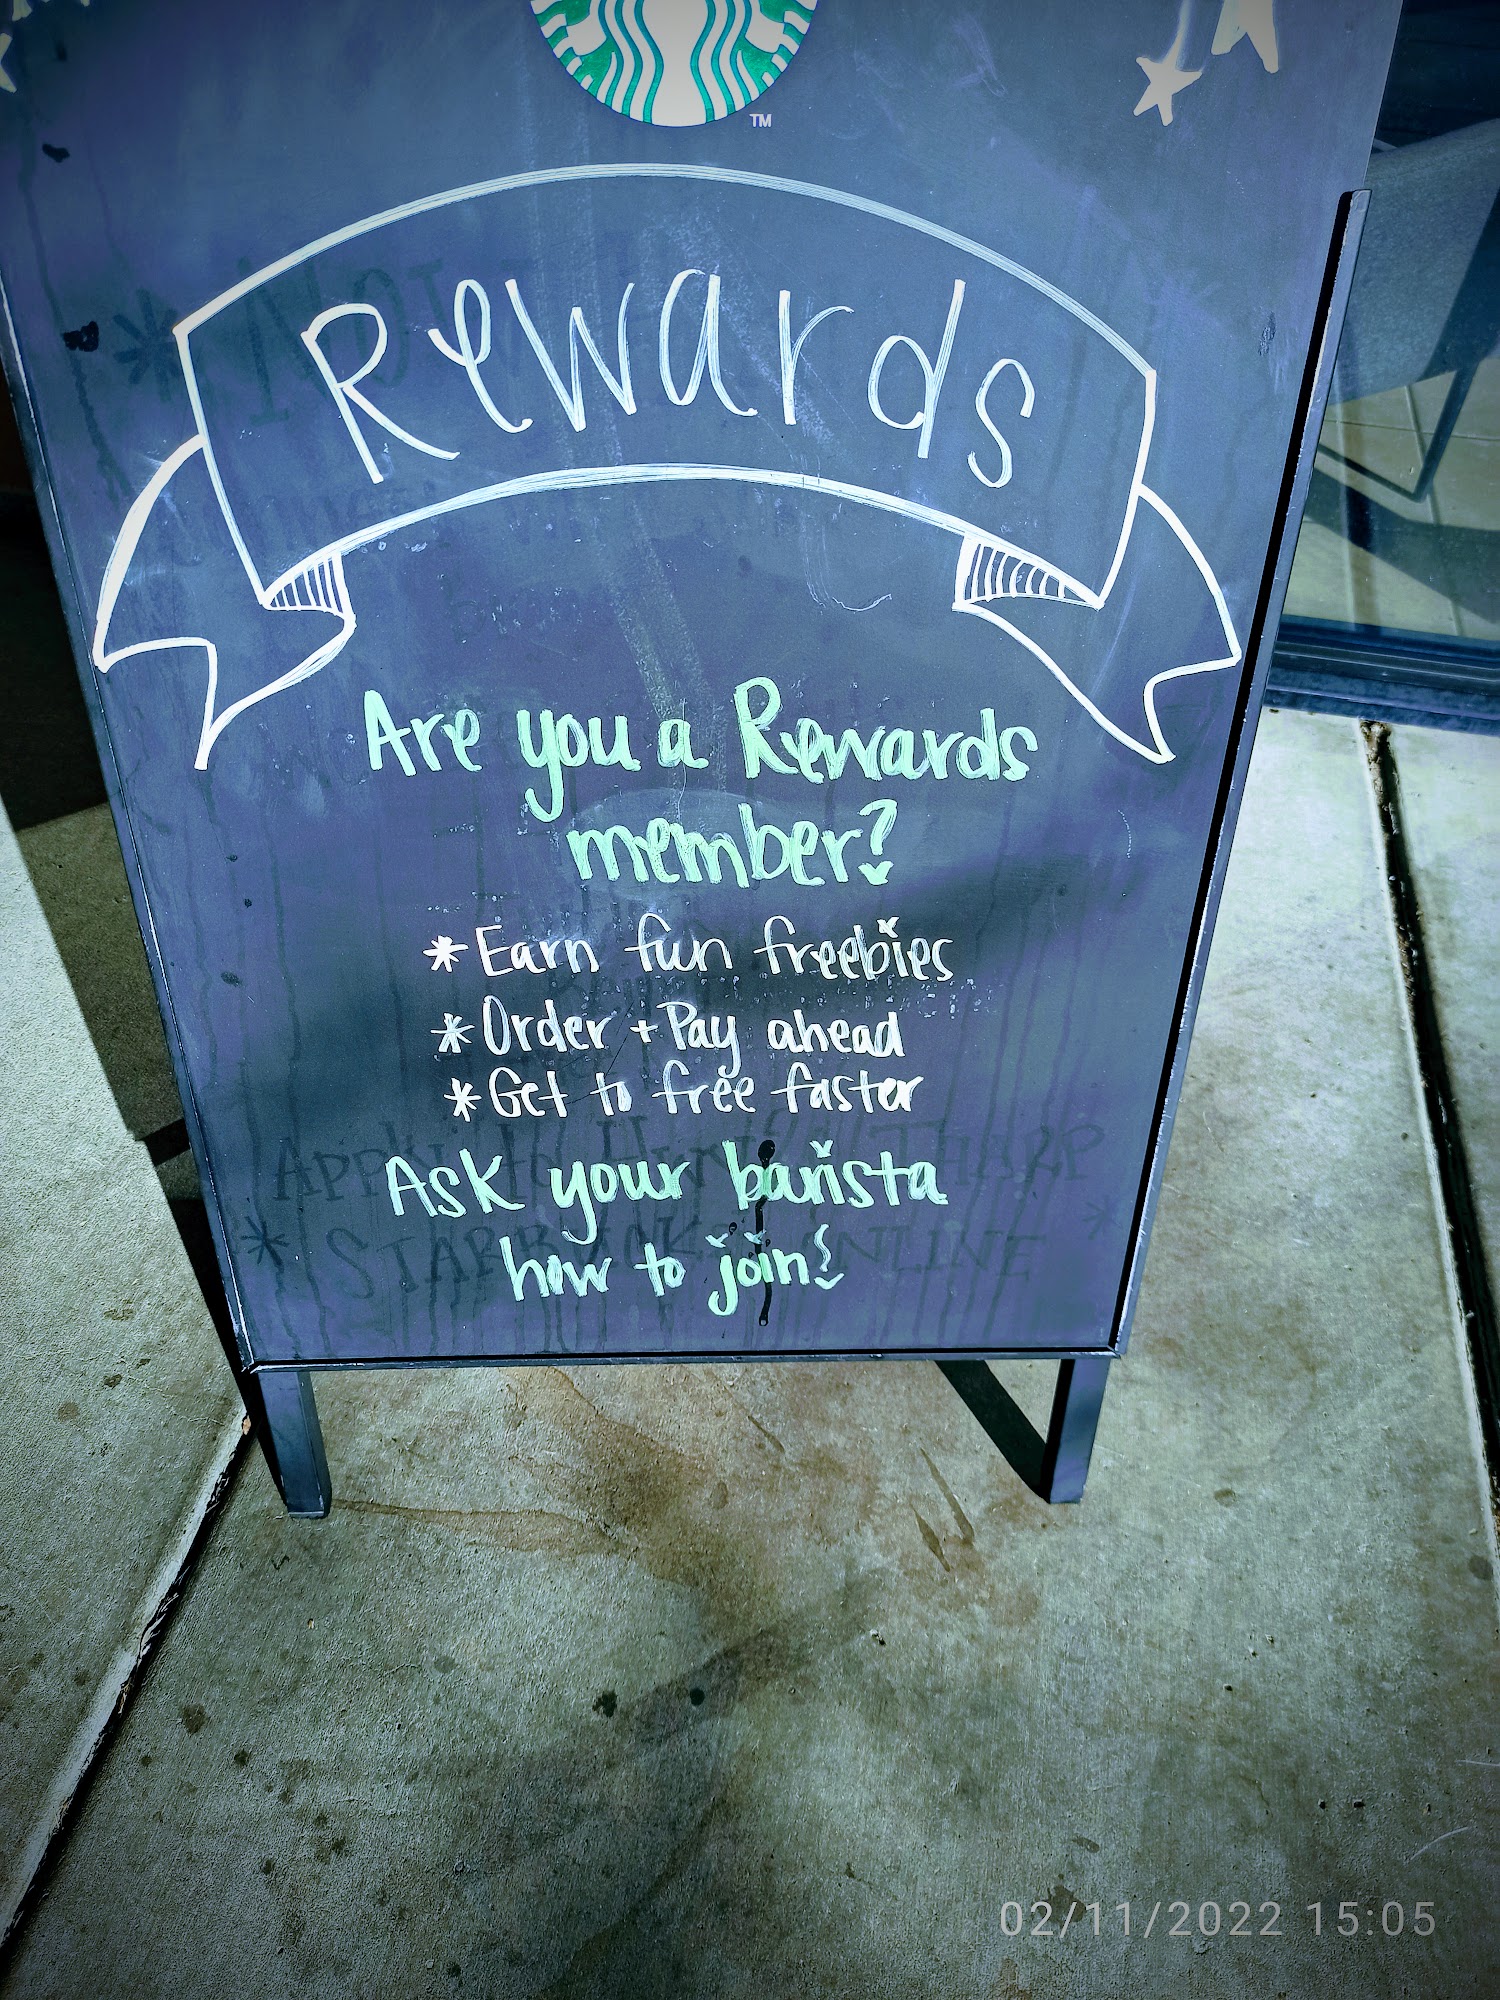 TM
Rewards
Are you a Rewards
member?
*Earn fun freebies
*Order + Pay ahead
*Get to free faster
Ask your barista
how to join!
02/11/2022 15:05